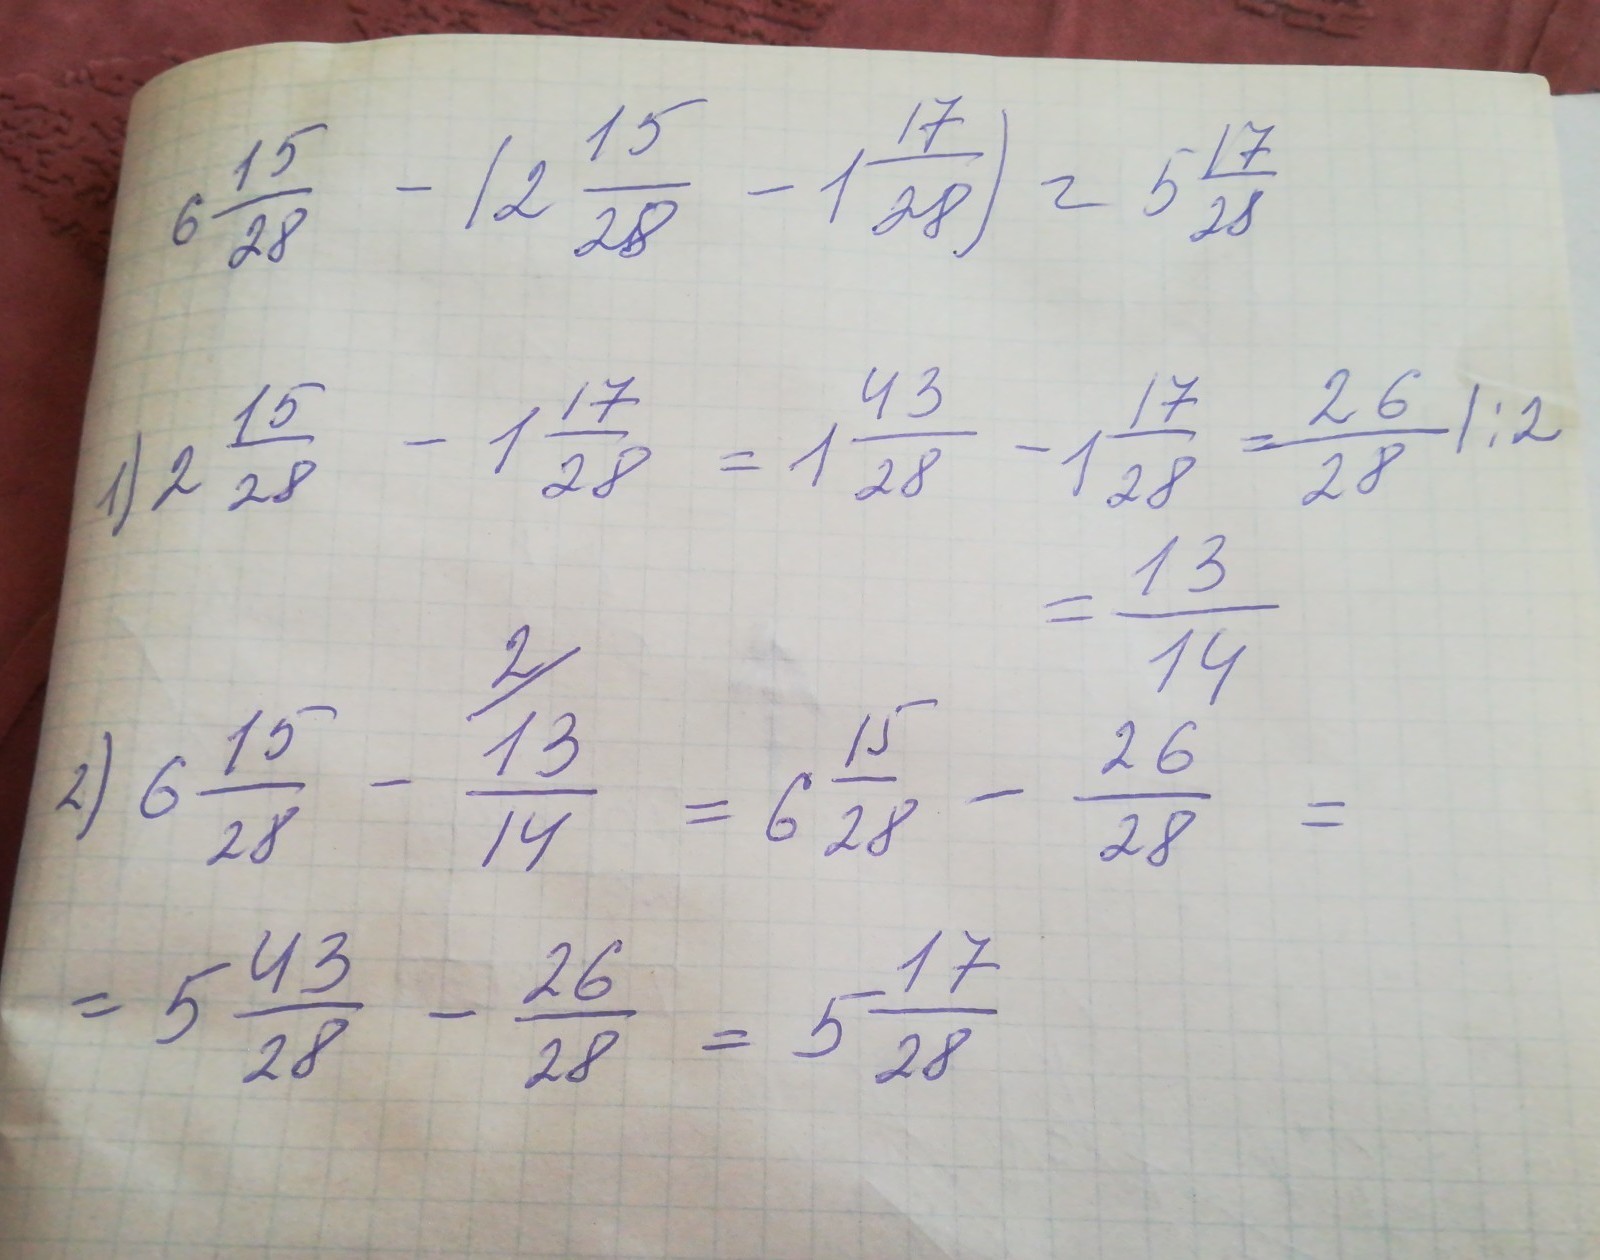 6 15/28 - (2 15/28 - 1 17/28) = 5 17/28
1) 2 15/28 - 1 17/28 = 1 43/28 - 1 17/28 = 26/28 | : 2
= 13/14
2) 6 15/28 - 2/ 13/14 = 6 15/28 - 26/28 =
= 5 43/28 - 26/28 = 5 17/28